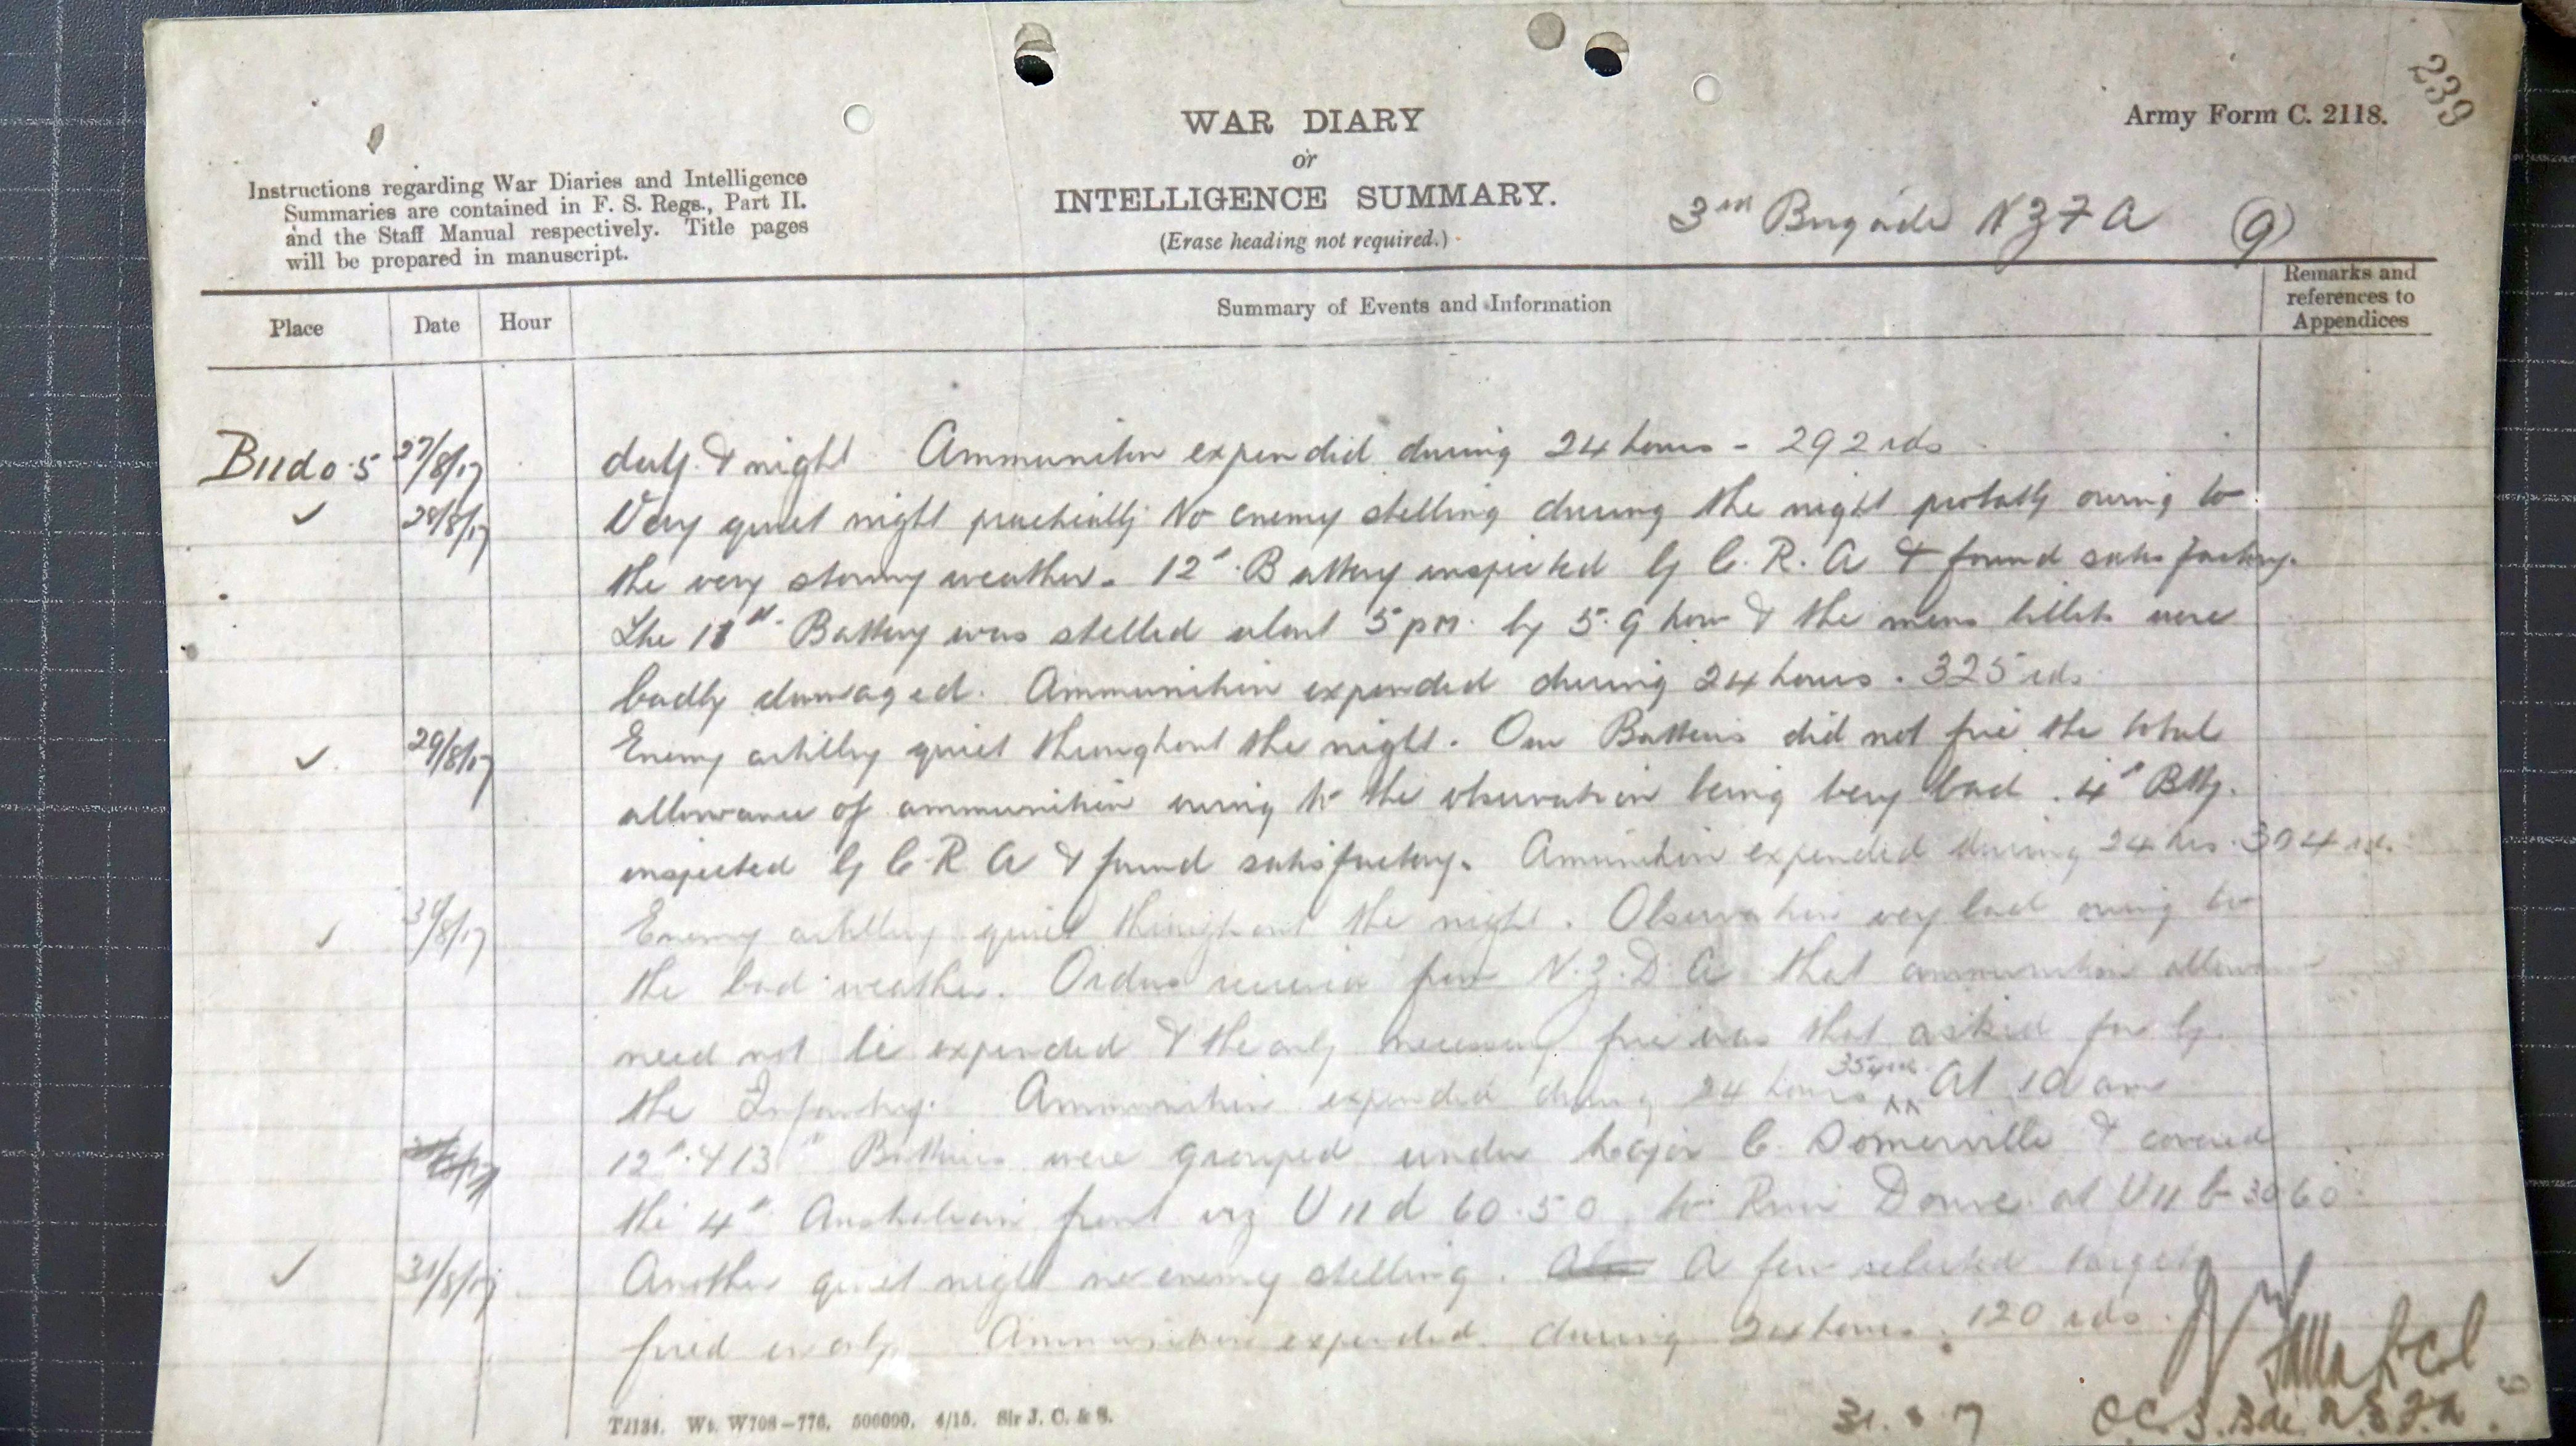 239
Army Form C. 2118.
WAR DIARY
or
INTELLIGENCE SUMMARY.
(Erase heading not required.)
Instructions regarding War Diaries and Intelligence
Summaries are contained in F. S. Regs., Part II.
and the Staff Manual respectively. Title pages
will be prepared in manuscript.
3rd Brigade N Z F A (9)
Place Date Hour Summary of Events and Information Remarks and references to Appendices
27/8/17 & night Ammunition expended during 24 hours - 292 rds
✓ 28/8/17 Very quiet night practically No enemy shelling during the night probably owing to
the very stormy weather. 12" Battery inspected by C. R. A & found satisfactory.
The Battery was shelled about 5 pm. by 5.9 how & the mens billets were
badly damaged. Ammunition expended during 24 hours. 325 rds
✓ 29/8/17 Enemy artillery quiet throughout the night. Our Batteries did not fire the total
allowance of ammunition owing to the observation being very bad. 4" Bty.
inspected by C R A & found satisfactory. Amunition expended during 24 hrs. rds.
✓ 30/8/17 Enemy artillery quiet throughout the night. Observation very bad owing to
the bad weather. Orders received from N.Z.D.A that ammunition
need not be expended & the only necessary fire was that asked for by
the Infantry. Ammunition expended during 24 hours At 10 am
12" & 13" Batteries were grouped under Major C. & covered
the 4" Australian front viz U 11 d 60.50 to at U 11 b 30 60
✓ 31/8/17 Another quiet night no enemy shelling. A few selected targets
fired Ammunition expended during 24 hours. 120 rds.
Lt Col
31. 8 7 O.C. 3. Bde. N.Z.F.A.
T2134. Wt. W708—776. 500000. 4/15. Sir J. C. & S.